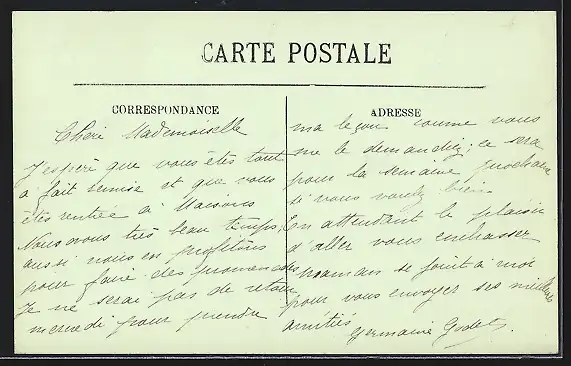 CARTE POSTALE
CORRESPONDANCE
ADRESSE
Chère Mademoiselle
J'espère que vous êtes tout
à fait remise et que vous
êtes rentrée à Maisons
Nous avons très beau temps,
aussi nous en profitons
pour faire des promenades
Je ne serai pas de retour
mercredi pour prendre
ma leçon comme vous
me le demandiez; ce sera
pour la semaine prochaine
si vous voulez bien.
En attendant le plaisir
d'aller vous embrasser
maman se joint à moi
pour vous envoyer ses meilleures
amitiés
Germaine